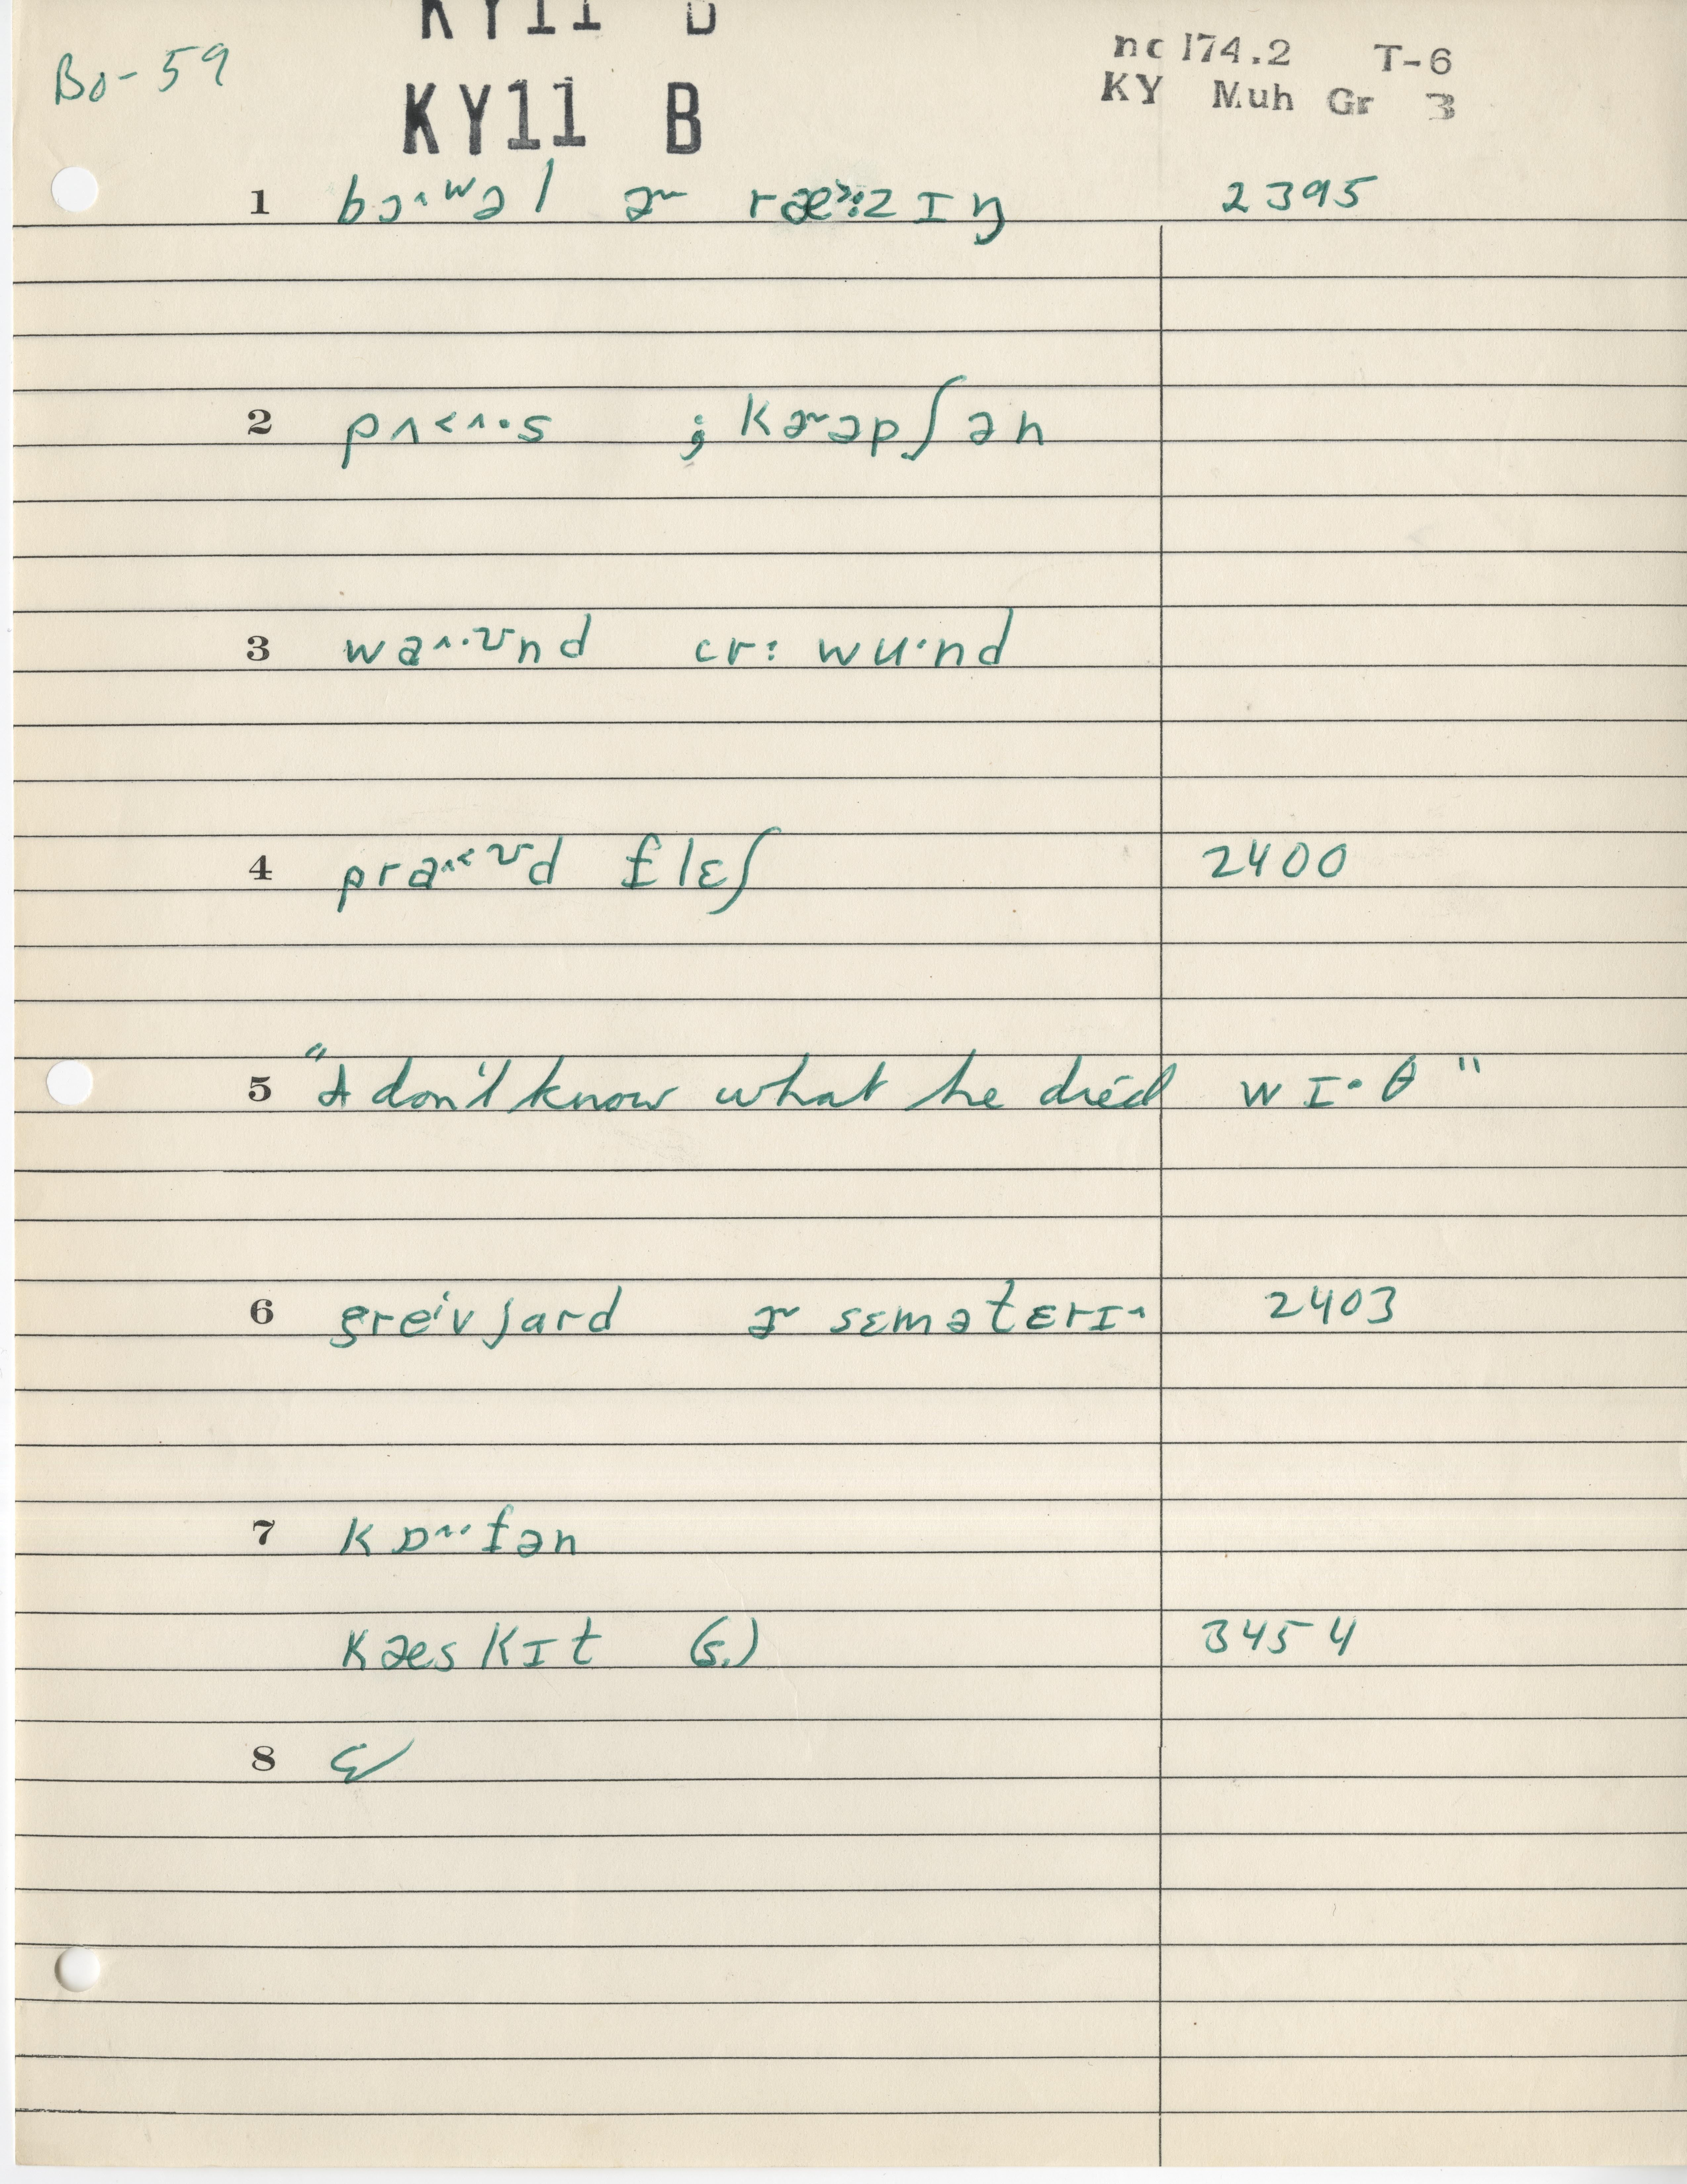 KY11 B
Bo-59
KY11 B
nc 174.2 T-6
KY Muh Gr 3
1 bɔ˄wəl ɚ ræzɪŋ 2395
2 pʌ<˄·s ; kɚəpʃən
3 wa˄·ʊnd cr: wu·nd
4 pra˄<ʊd flɛʃ 2400
5 "I don't know what he died wɪ·θ"
6 greivjard ɚ sɛmətɛrɪ˄ 2403
7 kɒ˄·fən
kæskɪt (s.) 3454
8